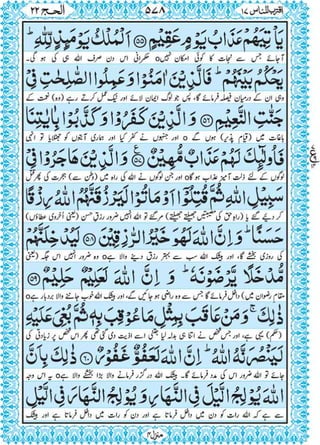 اقترب للناس ١٧ ٥٧٨ الحج ٢٢
يَاْتِيَهُمْ عَذَابُ يَوْمٍ عَقِيْمٍ ﴿٥٥﴾ اَلْمُلْكُ يَوْمَئِذٍ لِّلّٰهِ ؕ
آجائے جس سے نجات کا کوئی امکان نہیں o حکمرانی اس دن صرف اللہ ہی کی ہو گی۔
يَحْكُمُ بَيْنَهُمْ ؕ فَالَّذِيْنَ اٰمَنُوْا وَعَمِلُوا الصّٰلِحٰتِ فِيْ
وہی ان کے درمیان فیصلہ فرمائے گا، پس جو لوگ ایمان لائے اور نیک عمل کرتے رہے (وہ) نعمت کے
جَنّٰتِ النَّعِيْمِ ﴿٥٦﴾ وَالَّذِيْنَ كَفَرُوْا وَكَذَّبُوْا بِاٰيٰتِنَا
باغات میں (قیام پذیر) ہوں گے o اور جنہوں نے کفر کیا اور ہماری آیتوں کو جھٹلایا تو انہی
فَاُولٰٓئِكَ لَهُمْ عَذَابٌ مُّهِيْنٌ ﴿٥٧﴾ وَالَّذِيْنَ هَاجَرُوْا فِيْ
لوگوں کے لئے ذلت آمیز عذاب ہو گا o اور جن لوگوں نے اللہ کی راہ میں (وطن سے) ہجرت کی پھر قتل
سَبِيْلِ اللّٰهِ ثُمَّ قُتِلُوْۤا اَوْ مَاتُوْا لَيَرْزُقَنَّهُمُ اللّٰهُ رِزْقًا
کر دیئے گئے یا (راہِ حق کی مصیبتیں جھیلتے جھیلتے) مر گئے تو اللہ انہیں ضرور رزقِ حسن (یعنی اُخروی عطاؤں)
حَسَنًا ؕ وَاِنَّ اللّٰهَ لَهُوَ خَيْرُ الرّٰزِقِيْنَ ﴿٥٨﴾ لَيُدْخِلَنَّهُمْ
کی روزی بخشے گا، اور بیشک اللہ سب سے بہتر رزق دینے والا ہے o وہ ضرور انہیں اس جگہ (یعنی
مُّدْخَلًا يَّرْضَوْنَهٗ ؕ وَاِنَّ اللّٰهَ لَعَلِيْمٌ حَلِيْمٌ ﴿٥٩﴾
مقامِ رضوان میں) داخل فرمائے گا جس سے وہ راضی ہو جائیں گے، اور بیشک اللہ خوب جاننے والا بردبار ہے o
ذٰلِكَ ۚ وَمَنْ عَاقَبَ بِمِثْلِ مَا عُوْقِبَ بِهٖ ثُمَّ بُغِيَ عَلَيْهِ
(حکم) یہی ہے، اور جس شخص نے اتنا ہی بدلہ لیا جتنی اسے اذیت دی گئی تھی پھر اس شخص پر زیادتی کی
لَيَنْصُرَنَّهُ اللّٰهُ ؕ اِنَّ اللّٰهَ لَعَفُوٌّ غَفُوْرٌ ﴿٦٠﴾ ذٰلِكَ بِاَنَّ
جائے تو اللہ ضرور اس کی مدد فرمائے گا۔ بیشک اللہ درگزر فرمانے والا بڑا بخشنے والا ہے o یہ اس وجہ
اللّٰهَ يُوْلِجُ الَّيْلَ فِي النَّهَارِ وَيُوْلِجُ النَّهَارَ فِي الَّيْلِ
سے ہے کہ اللہ رات کو دن میں داخل فرماتا ہے اور دن کو رات میں داخل فرماتا ہے اور بیشک
منزل ٤